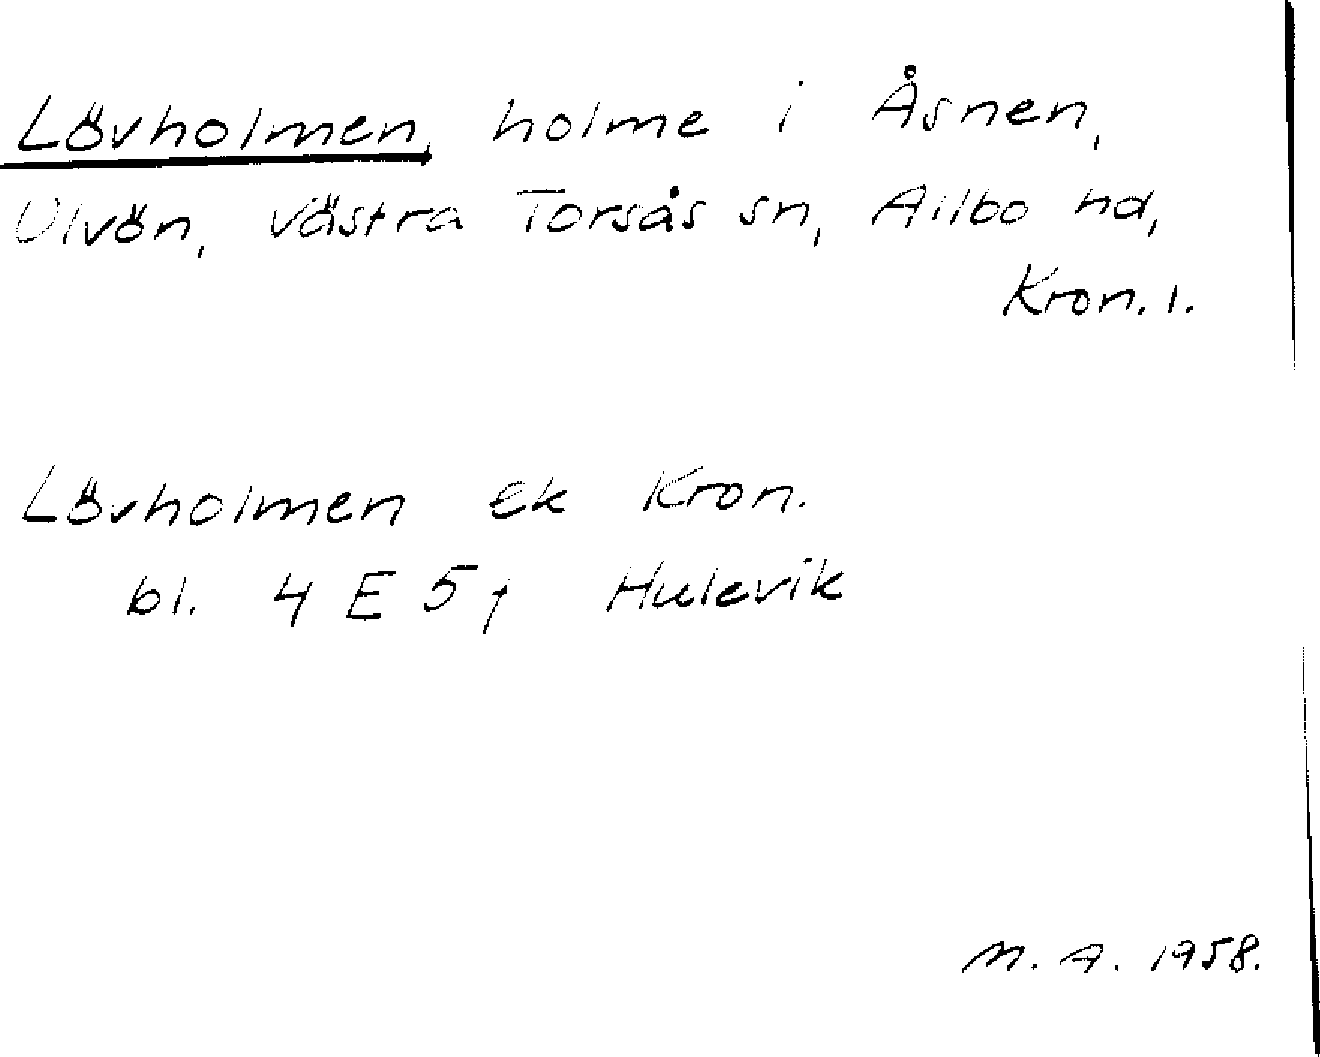 Lövholmen, holme i Åsnen,
Ulvön, Västra Torsås sn, Allbo hd,
Kron. l.
Lövholmen Ek Kron.
bl. 4 E 5 f Hulevik
M. A. 1958.